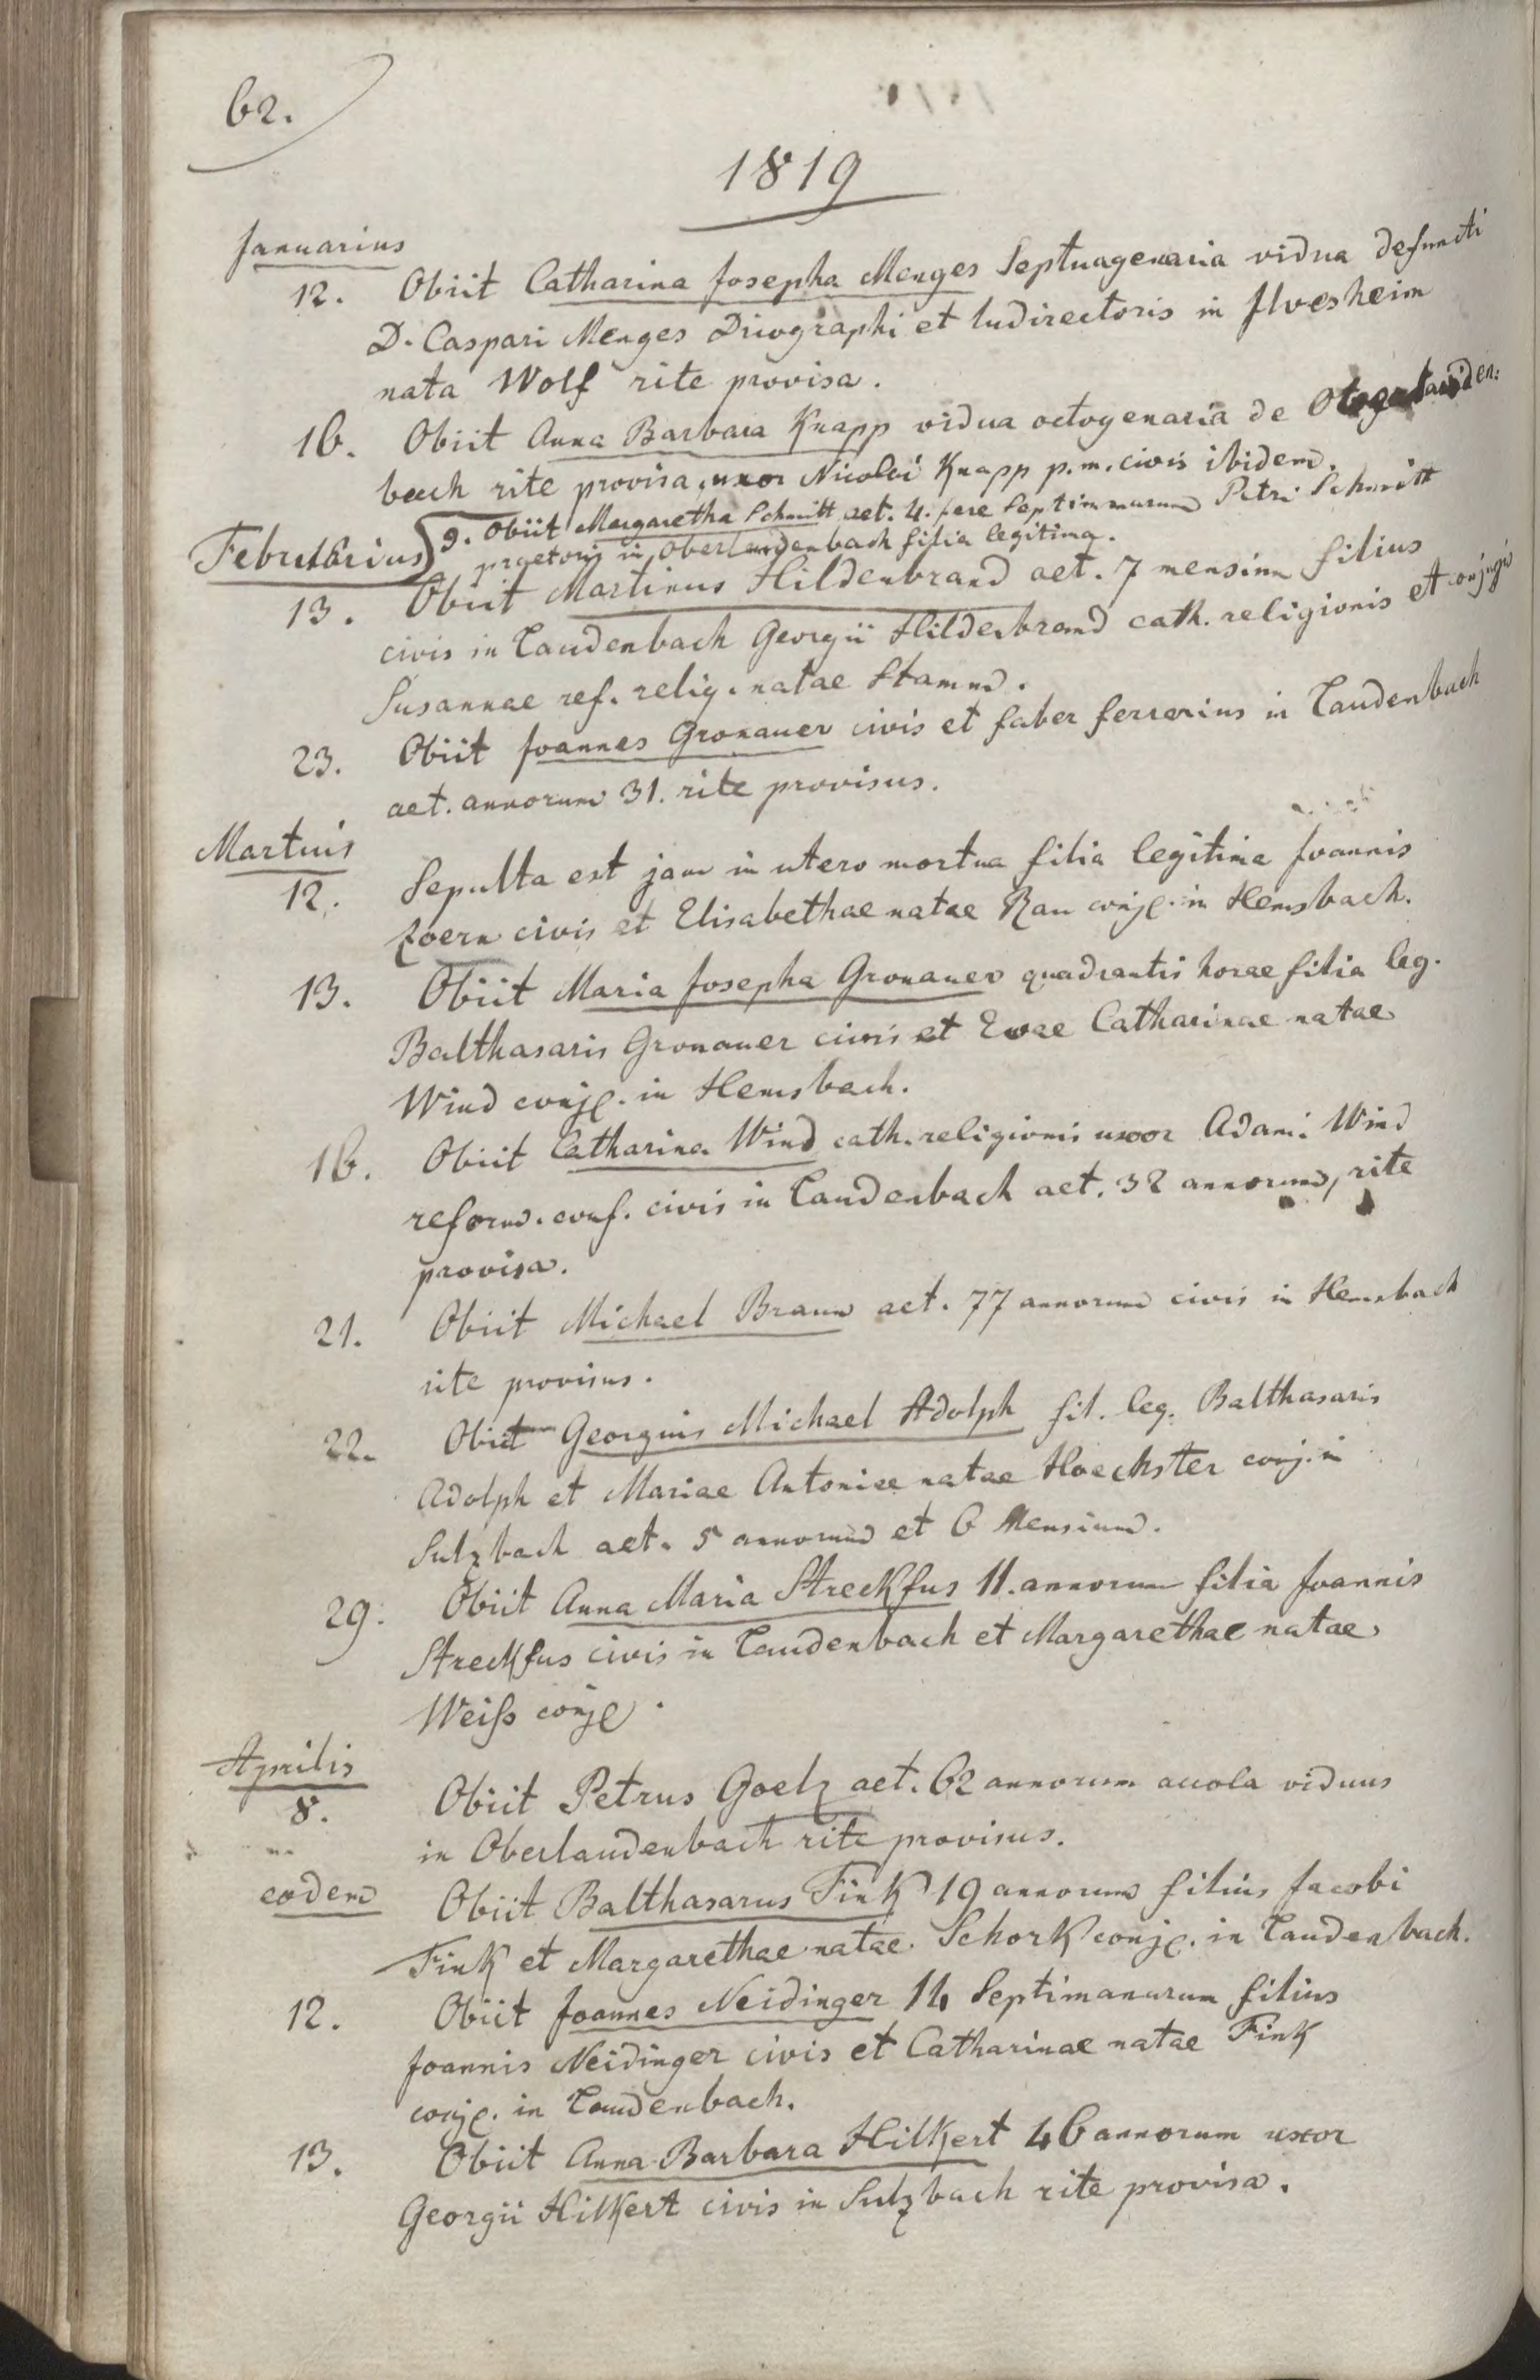 62.
1819
Januarius
12. Obiit Catharina Josepha Menges Septuagenaria vidua defuncti
D. Caspari Menges Dicographi et ludirectoris in Ilvesheim
nata Wolf rite provisa.
16. Obiit Anna Barbara Knapp vidua octogenaria de
bach rite provisa, uxor Nicolai Knapp p.m. civis ibidem.
Februarius 9. Obiit Margaretha Schmitt aet. 4. fere Septimanarum Petri Schmitt
praetoris in Oberlaudenbach filia legitima.
13. Obiit Martinus Hildenbrand aet. 7 mensium filius
civis in Laudenbach Georgii Hildenbrand cath. religionis et conjugis
Susannae ref. relig. natae Stamm.
23. Obiit Joannes Gronauer civis et faber ferrarius in Laudenbach
aet. annorum 31. rite provisus.
Martius
12. Sepulta est jam in utero mortua filia legitima Joannis
Zoern civis et Elisabethae natae Rau conjg. in Hemsbach.
13. Obiit Maria Josepha Gronauer quadrantis horae filia leg.
Balthasaris Gronauer civis et Evae Catharinae natae
Wind conjg. in Hemsbach.
16. Obiit Catharina Wind cath. religionis uxor Adami Wind
reform. conf. civis in Laudenbach aet. 32 annorum, rite
provisa.
21. Obiit Michael Braun aet. 77 annorum civis in Hemsbach
rite provisus.
22. Obiit Georgius Michael Adolph fil. leg. Balthasaris
Adolph et Mariae Antoniae natae Hoechster conj. in
Sulzbach aet. 5 annorum et 6 Mensium.
29. Obiit Anna Maria Streckfus 11. annorum filia Joannis
Streckfus civis in Laudenbach et Margarethae natae
Weiss conjg.
Aprilis
8. Obiit Petrus Goelz aet. 62 annorum accola viduus
in Oberlaudenbach rite provisus.
eodem Obiit Balthasarus Fink 19 annorum filius Jacobi
Fink et Margarethae natae Schork conjg. in Laudenbach.
12. Obiit Joannes Neidinger 14 Septimanarum filius
Joannis Neidinger civis et Catharinae natae Fink
conjg. in Laudenbach.
13. Obiit Anna Barbara Hilkert 46 annorum uxor
Georgii Hilkert civis in Sulzbach rite provisa.